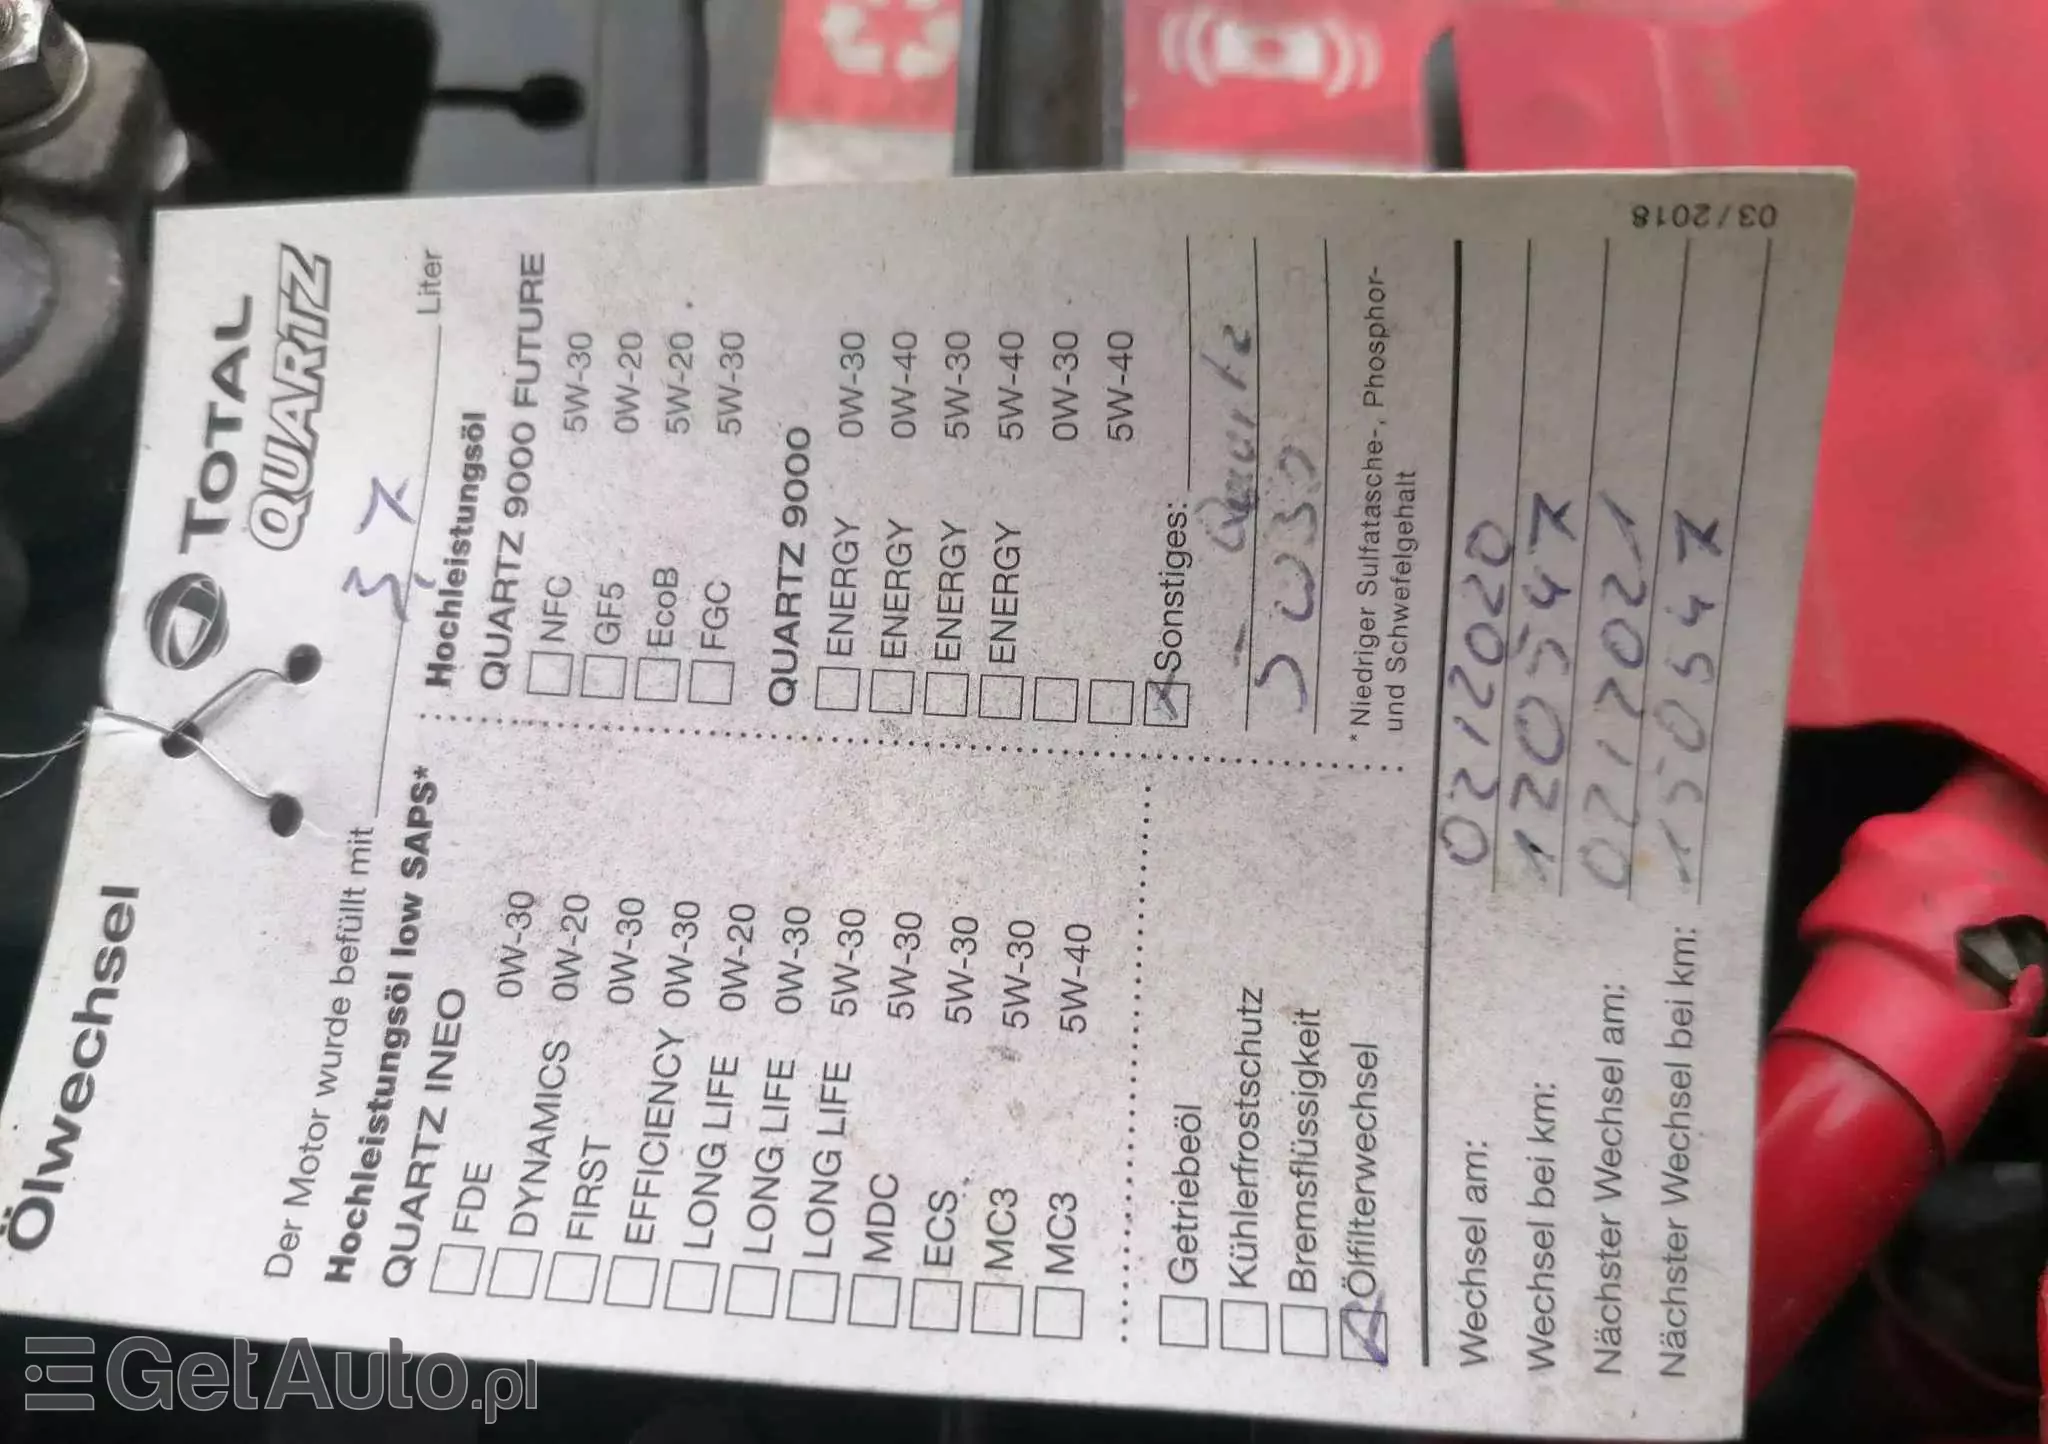 Ölwechsel
TOTAL
QUARTZ
Der Motor wurde befüllt mit 3,7 Liter
Hochleistungsöl low SAPS*
QUARTZ INEO
FDE 0W-30
DYNAMICS 0W-20
FIRST 0W-30
EFFICIENCY 0W-30
LONG LIFE 0W-20
LONG LIFE 0W-30
LONG LIFE 5W-30
MDC 5W-30
ECS 5W-30
MC3 5W-30
MC3 5W-40
Hochleistungsöl
QUARTZ 9000 FUTURE
NFC 5W-30
GF5 0W-20
EcoB 5W-20
FGC 5W-30
QUARTZ 9000
ENERGY 0W-30
ENERGY 0W-40
ENERGY 5W-30
ENERGY 5W-40
0W-30
5W-40
Sonstiges:
5W30
*Niedriger Sulfatasche-, Phosphor-
und Schwefelgehalt
Getriebeöl
Kühlerfrostschutz
Bremsflüssigkeit
Ölfilterwechsel
Wechsel am: 02 12020
Wechsel bei km: 120547
Nächster Wechsel am: 02 12021
Nächster Wechsel bei km: 150547
03/2018
GetAuto.pl